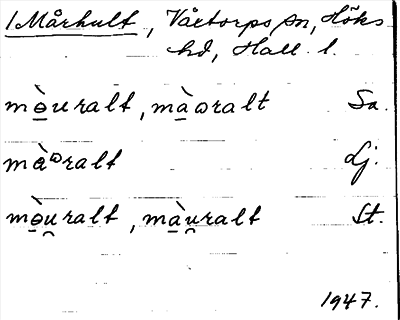 1 Mårhult, Vårtorps sn, Höks
hd, Hall. l.
mə̀uralt, màɷralt Sa.
màᶷralt Lj.
mə̀u̯ralt, màu̯ralt St.
1947.